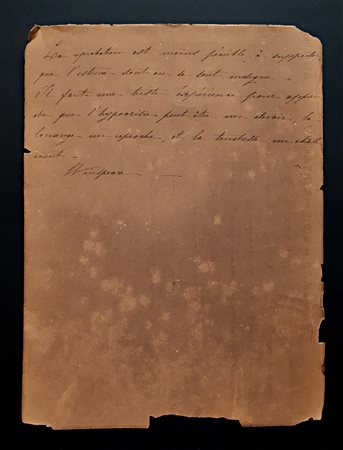 La reprobation est moins pénible à supporter
que l'estime dont on se sent indigne.
Il faut une triste expérience pour appren
dre que l'hypocrisie peut être un devoir, la
louange un reproche, et la tendresse un châti
ment.